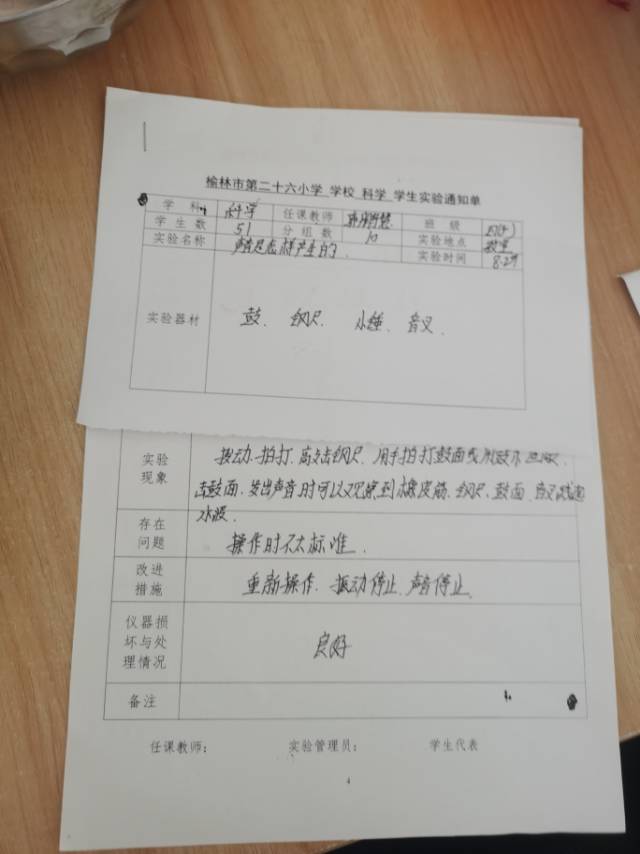 榆林市第二十六小学 学校 科学 学生实验通知单
学科 科学 任课教师 班级
学生数 51 分组数 10 实验地点 教室
实验名称 声音是怎样产生的. 实验时间 8.29
实验器材 鼓、钢尺、小锤、音叉.
实验现象 拨动.拍打.敲击钢尺.用手拍打鼓面或用鼓
击鼓面.发出声音时可以观察到橡皮筋.钢尺.鼓面.音叉
水波.
存在问题 操作时不太标准.
改进措施 重新操作.振动停止.声音停止.
仪器损坏与处理情况 良好
备注
任课教师: 实验管理员: 学生代表
4